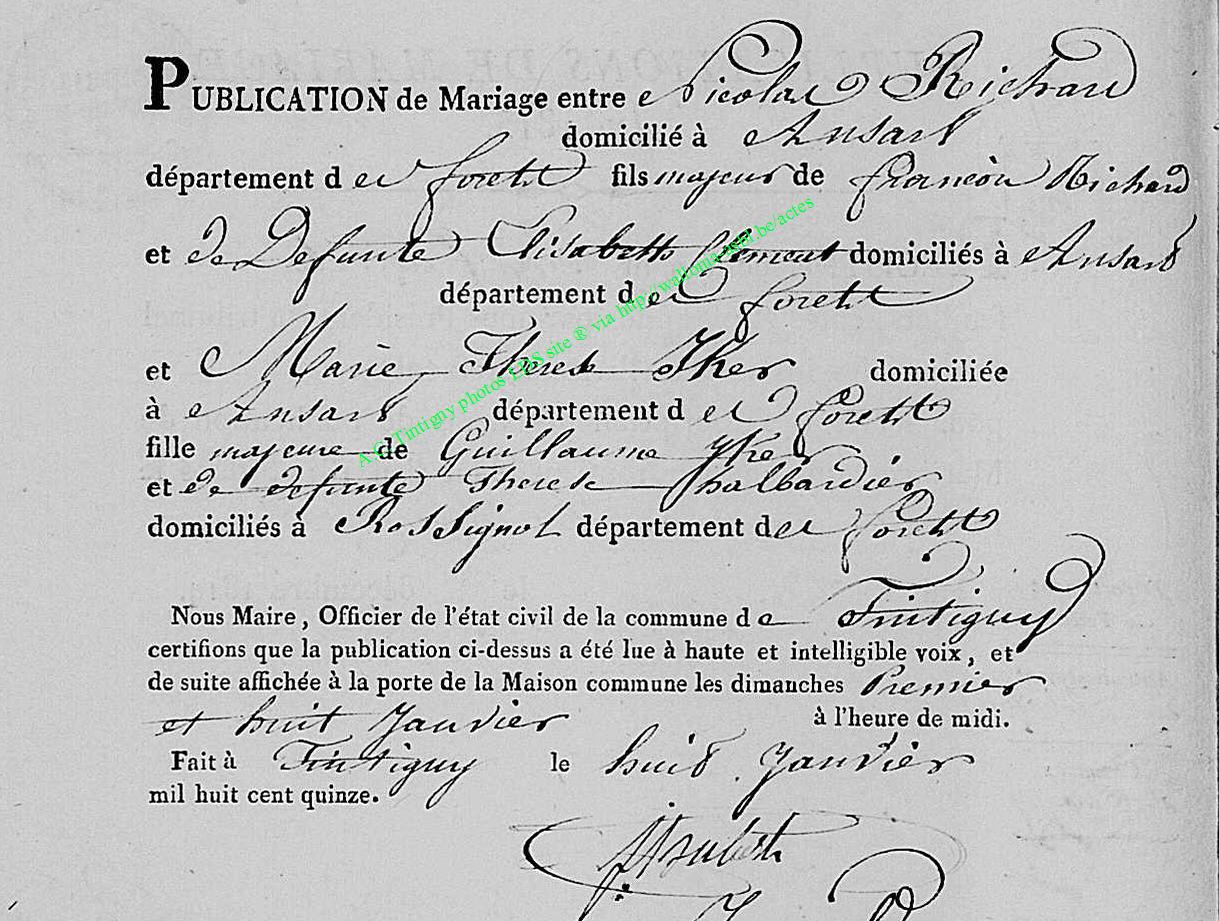 PUBLICATION de Mariage entre Nicolas Richard
domicilié à Ansart
département des forett fils majeur de françoi Richard
et de Defunte Elisabette Clement domiciliés à Ansart
département des forett
et Marie Therese Jker domiciliée
à Ansart département des forett
fille majeure de Guillaume Jker
et de defunte Therese halbardier
domiciliés à Rossignol département des forett
Nous Maire, Officier de l'état civil de la commune de Tintigny
certifions que la publication ci-dessus a été lue à haute et intelligible voix, et
de suite affichée à la porte de la Maison commune les dimanches Premier
et huit Janvier à l'heure de midi.
Fait à Tintigny le huit Janvier
mil huit cent quinze.
A.C. Tintigny photos LDS site ® via http://wallonia-asbl.be/actes